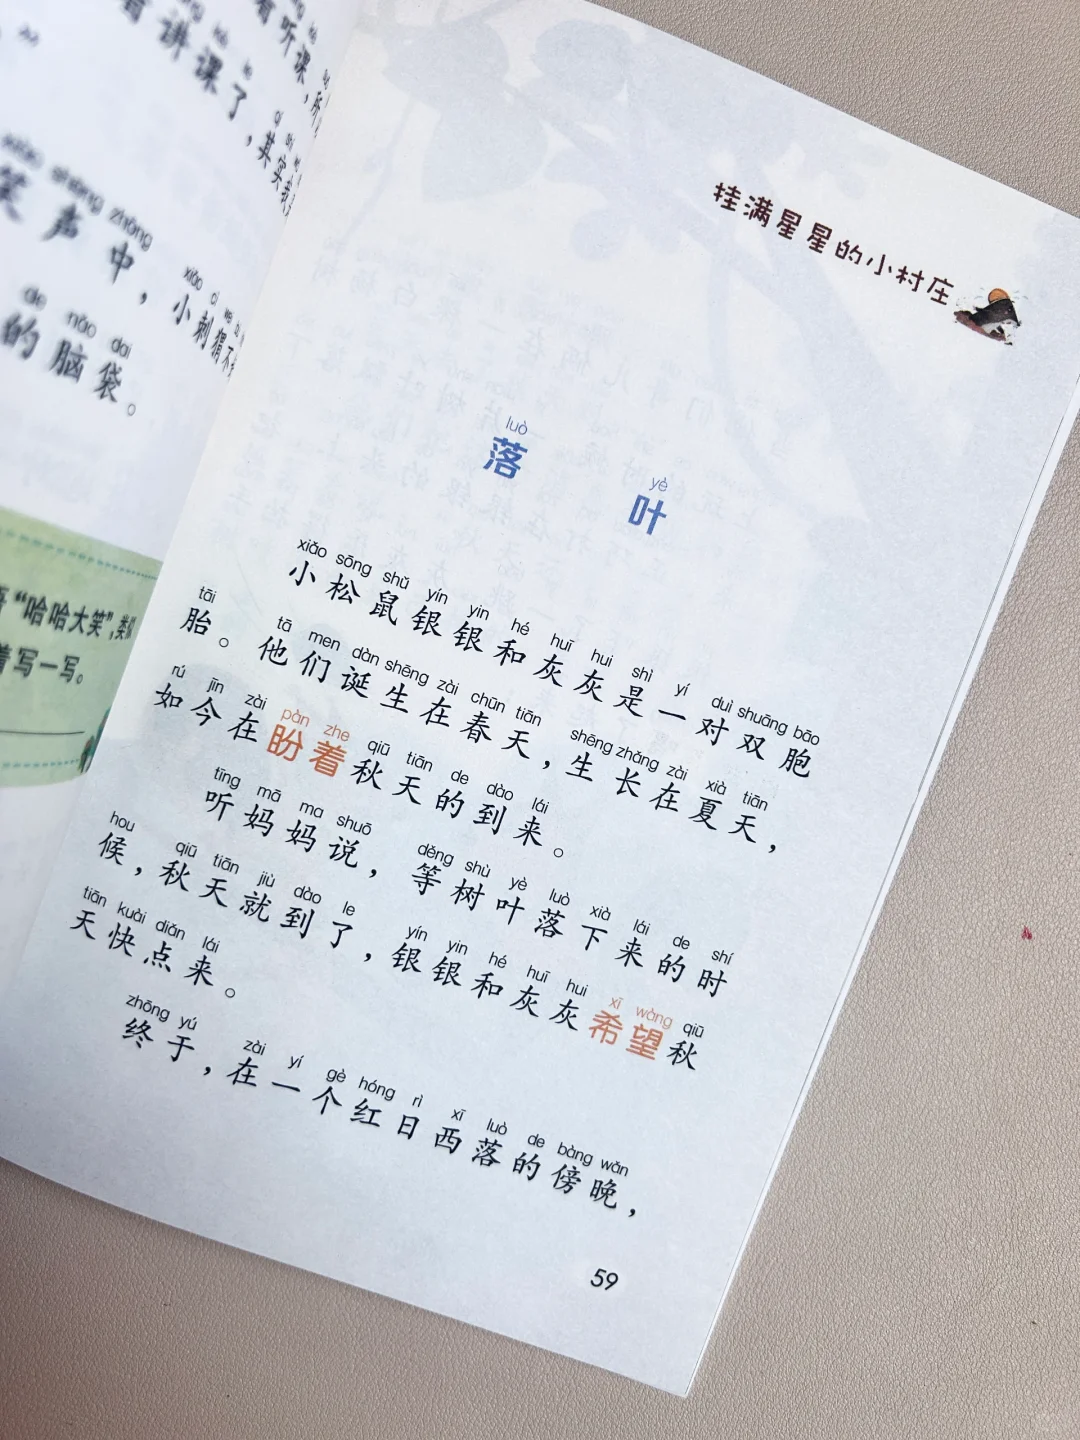 着听课,所
着讲课了,其实我
xiào shēng zhōng
笑声中,小刺猬不
de nǎo dai
的脑袋。
“哈哈大笑”,类似
着写一写。
挂满星星的小村庄
luò yè
落叶
xiǎo sōng shǔ yín yin hé huī hui shì yí duì shuāng bāo
小松鼠银银和灰灰是一对双胞
tāi tā men dàn shēng zài chūn tiān shēng zhǎng zài xià tiān
胎。他们诞生在春天,生长在夏天,
rú jīn zài pàn zhe qiū tiān de dào lái
如今在盼着秋天的到来。
tīng mā ma shuō děng shù yè luò xià lái de shí
听妈妈说,等树叶落下来的时
hou qiū tiān jiù dào le yín yin hé huī hui xī wàng qiū
候,秋天就到了,银银和灰灰希望秋
tiān kuài diǎn lái
天快点来。
zhōng yú zài yí gè hóng rì xī luò de bàng wǎn
终于,在一个红日西落的傍晚,
59